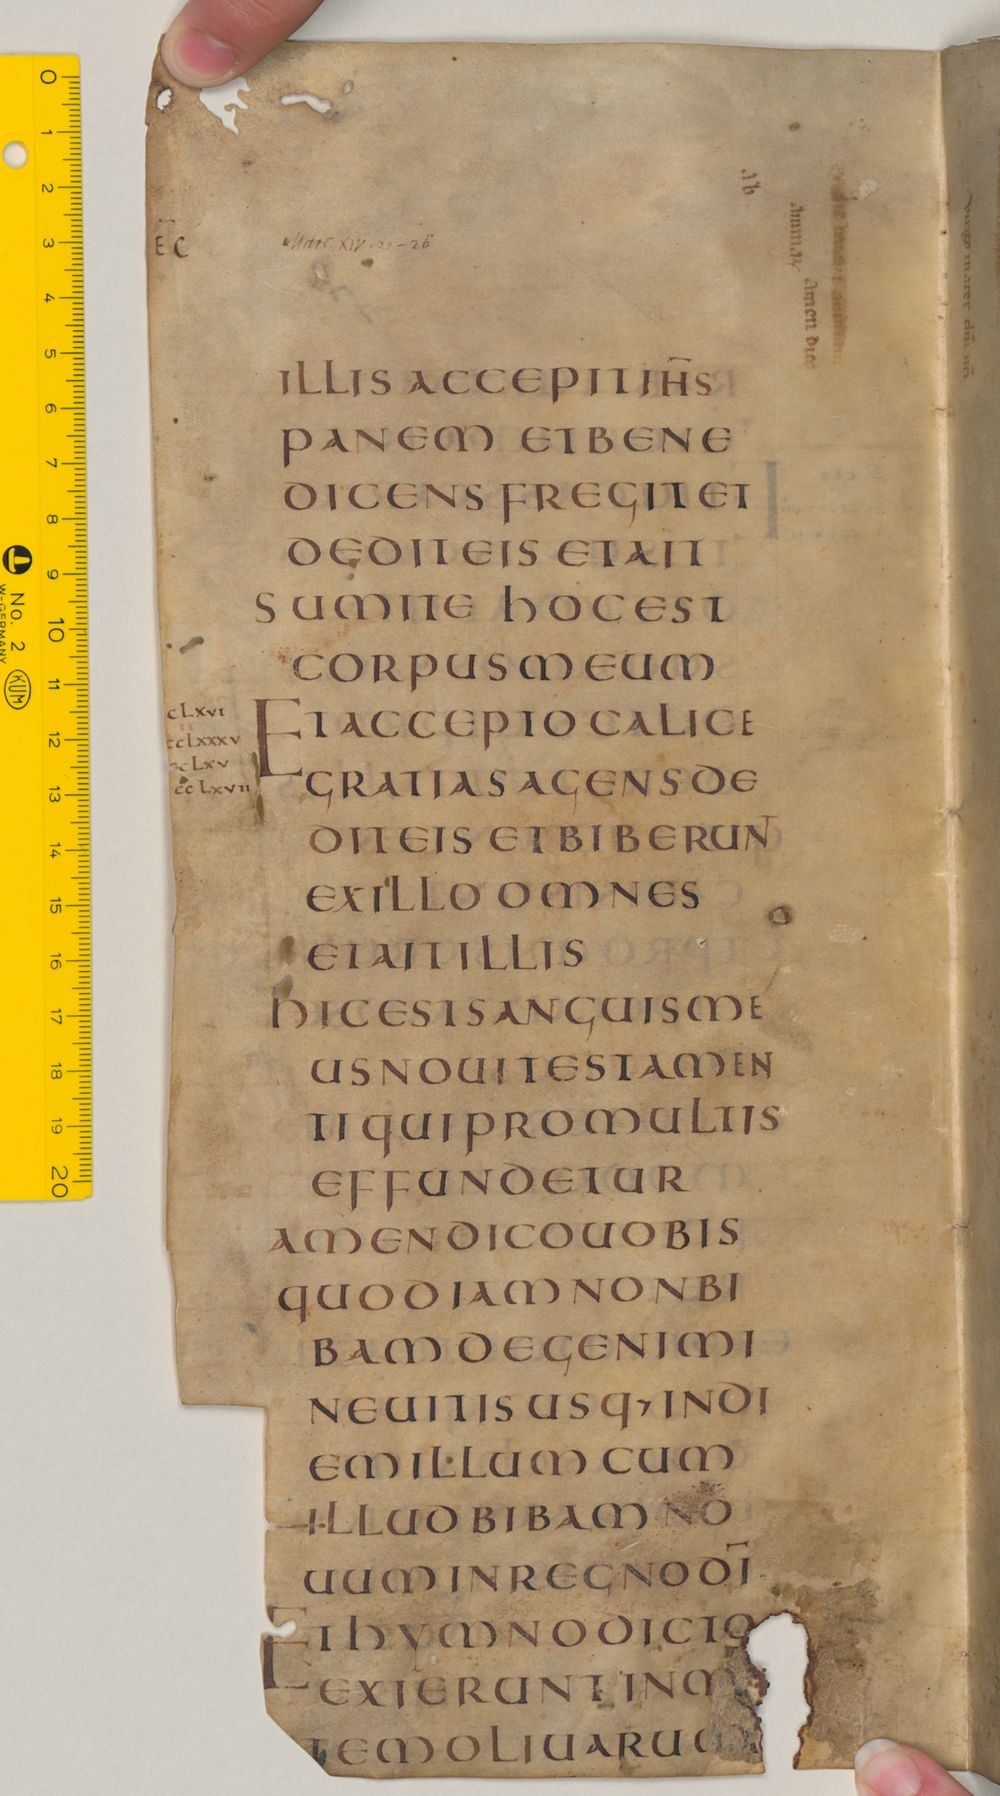 EC
Marc. XIV. 22-26
ab
ammas
amen dico
ILLIS ACCEPIT IH̅S
PANEM ET BENE
DICENS FREGIT ET
DEDIT EIS ET AIT
SUMITE HOC EST
CORPUS MEUM
ET ACCEPTO CALICE
GRATIAS AGENS DE
DIT EIS ET BIBERUNT
EX ILLO OMNES
ET AIT ILLIS
HIC EST SANGUIS ME
US NOUI TESTAMEN
TI QUI PRO MULTIS
EFFUNDETUR
AMEN DICO UOBIS
QUOD IAM NON BI
BAM DE GENIMI
NE UITIS USQ, IN DI
EM ILLUM CUM
ILLUD BIBAM NO
UUM IN REGNO DI̅
ET HYMNO DICTO
EXIERUNT IN M
TEM OLIUARUM
CLXVI
CCLXXXV
CCLXV
CCLXVII
0 1 2 3 4 5 6 7 8 9 10 11 12 13 14 15 16 17 18 19 20
No. 2
KUM
W-GERMANY